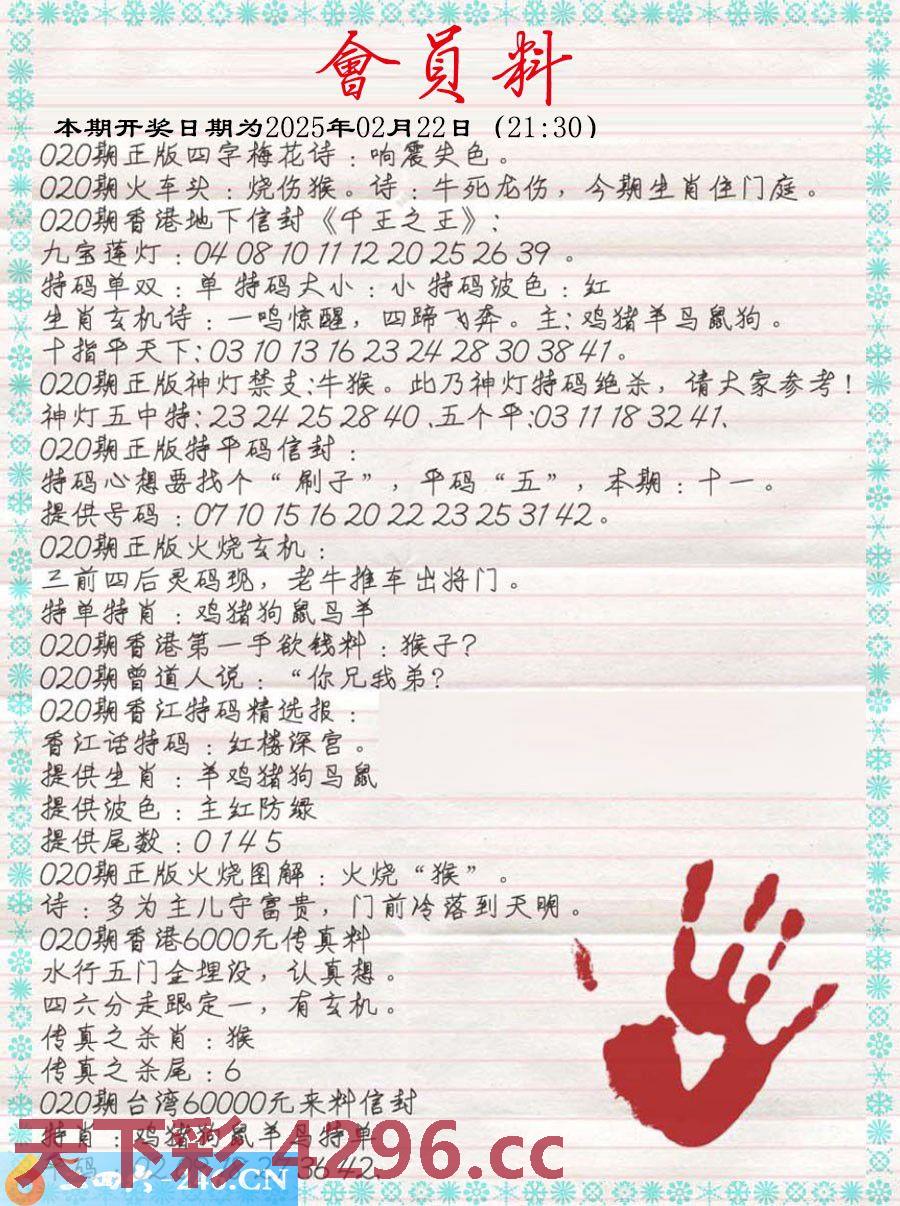 會員料
本期开奖日期为2025年02月22日（21:30）
020期正版四字梅花诗：响震失色。
020期火车头：烧伤猴。诗：牛死龙伤，今期生肖住门庭。
020期香港地下信封《千王之王》：
九宝莲灯：04 08 10 11 12 20 25 26 39 。
特码单双：单 特码大小：小 特码波色：红
生肖玄机诗：一鸣惊醒，四蹄飞奔。主：鸡猪羊马鼠狗。
十指平天下：03 10 13 16 23 24 28 30 38 41。
020期正版神灯禁支：牛猴。此乃神灯特码绝杀，请大家参考！
神灯五中特：23 24 25 28 40、五个平：03 11 18 32 41、
020期正版特平码信封：
特码心想要找个“刷子”，平码“五”，本期：十一。
提供号码：07 10 15 16 20 22 23 25 31 42。
020期正版火烧玄机：
三前四后灵码现，老牛推车出将门。
特单特肖：鸡猪狗鼠马羊
020期香港第一手欲钱料：猴子？
020期曾道人说：“你兄我弟？
020期香江特码精选报：
香江话特码：红楼深宫。
提供生肖：羊鸡猪狗马鼠
提供波色：主红防绿
提供尾数：0 1 4 5
020期正版火烧图解：火烧“猴”。
诗：多为主儿守富贵，门前冷落到天明。
020期香港6000元传真料
水行五门金埋没，认真想。
四六分走跟定一，有玄机。
传真之杀肖：猴
传真之杀尾：6
020期台湾60000元来料信封
特肖：鸡猪狗鼠羊马特单
天下彩 4296.cc
36 42、
246.CN